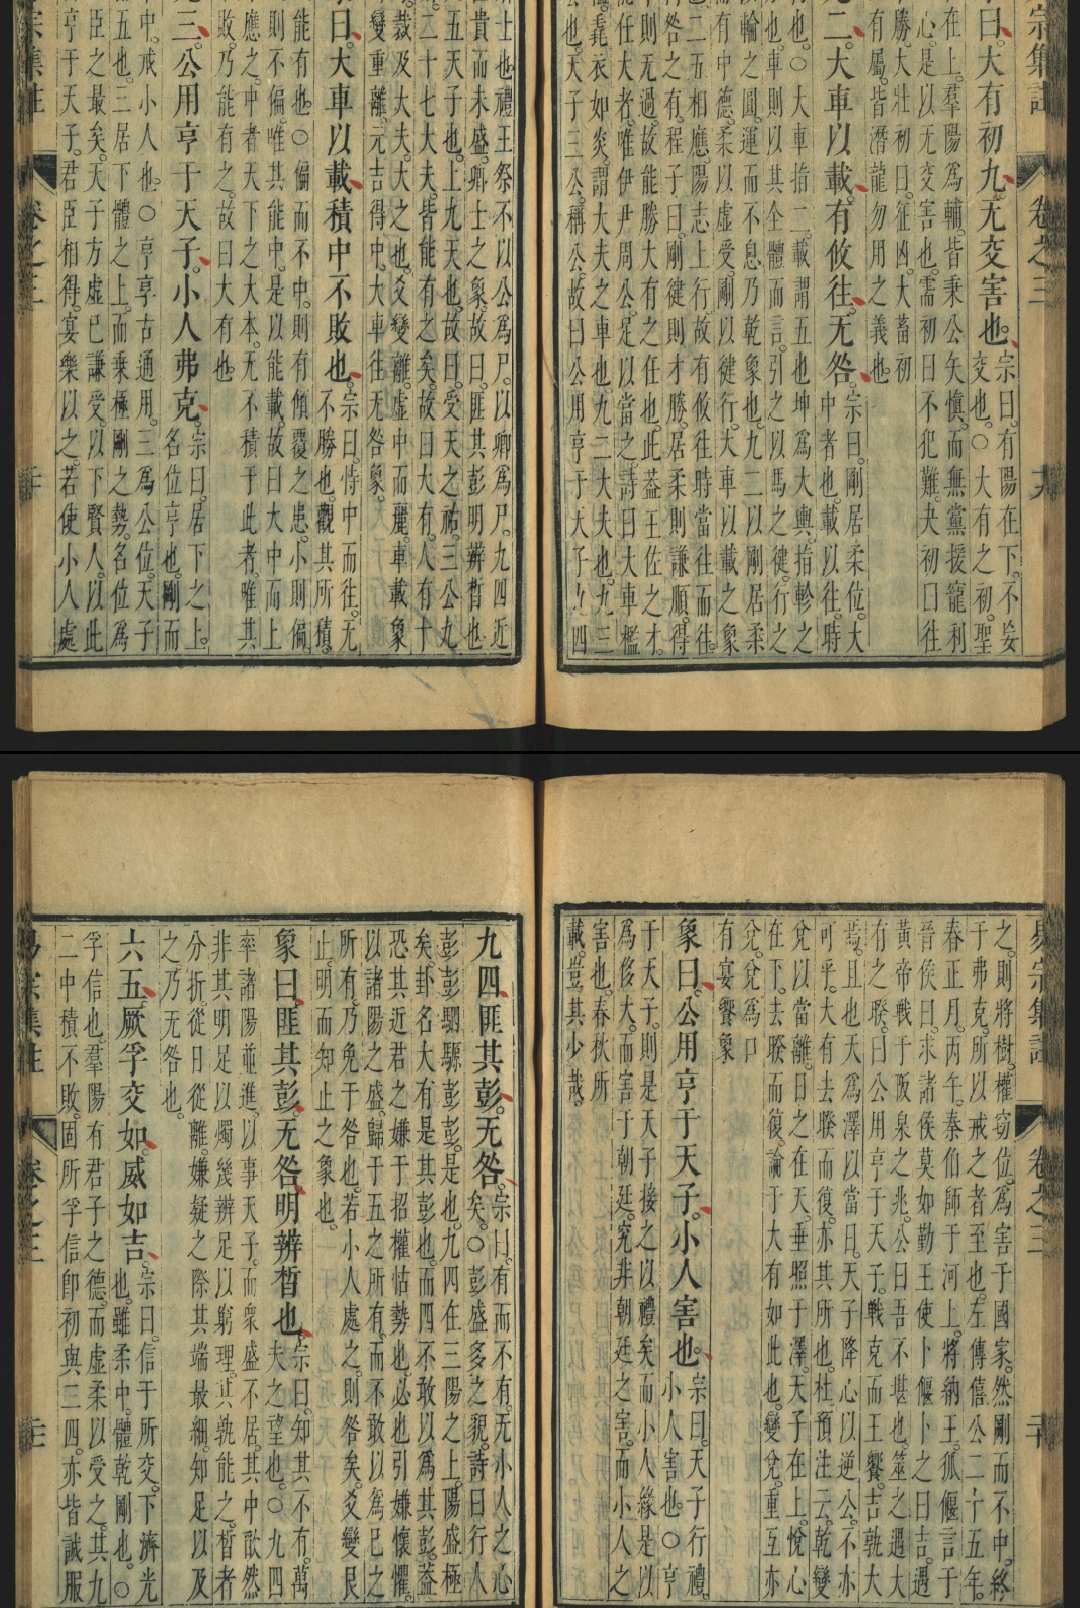 易宗集註
卷之三
九
曰大有初九无交害也宗曰有陽在下不妄
交也○大有之初聖
在上羣陽為輔皆秉公矢慎而無黨援寵利
心是以无交害也需初曰不犯難夬初曰往
勝大壯初曰征凶大畜初
有厲皆潛龍勿用之義也
九二大車以載有攸往无咎宗曰剛居柔位大
中者也載以往時
也○大車指二載謂五也坤為大輿指軫之
也車則以其全體而言引之以馬之健行之
輪之圓運而不息乃乾象也九二以剛居柔
有中德柔以虛受剛以健行大車以載之象
二五相應陽志上行故有攸往時當往而往
咎之有程子曰剛健則才勝居柔則謙順得
則无過故能勝大有之任也此蓋王佐之才
任大者唯伊尹周公足以當之詩曰大車檻
毳衣如炎謂大夫之車也九二大夫也九三
也天子三公稱公故曰公用亨于天子九四
士也禮王祭不以公為尸以卿為尸九四近
貴而未盛卿士之象故曰匪其彭明辨晳也
五天子也上九天也故曰受天之祐三公九
二十七大夫皆能有之矣故曰大有人有十
裁及大夫大之也爻變離虛中而麗車載象
變重離元吉得中大車往无咎象
曰大車以載積中不敗也宗曰恃中而往无
不勝也觀其所積
能有也○偏而不中則有傾覆之患小則偏
則不偏唯其能中是以能載故曰大中而上
應之中者天下之大本无不積于此者唯其
敗乃能有之故曰大有也
九三公用亨于天子小人弗克宗曰居下之上
名位亨也剛而
中戒小人也○亨享古通用三為公位天子
五也三居下體之上而乗極剛之勢名位為
臣之最矣天子方虛已謙受以下賢人以此
亨于天子君臣相得宴樂以之若使小人處
宗集註
卷之三
二十
易宗集註
卷之三
二十
之則將樹權竊位為害于國家然剛而不中終
于弗克所以戒之者至也左傳僖公二十五年
春正月丙午秦伯師于河上將納王狐偃言于
晉侯曰求諸侯莫如勤王使卜偃卜之曰吉遇
黃帝戰于阪泉之兆公曰吾不堪也筮之遇大
有之睽曰公用亨于天子戰克而王饗吉孰大
焉且也天為澤以當日天子降心以逆公不亦
可乎大有去睽而復亦其所也杜預注云乾變
兌以當離日之在天垂照于澤天子在上悅心
在下去睽而復論于大有如此也變兌重互亦
兌兌為口
有宴饗象
象曰公用亨于天子小人害也宗曰天子行禮
小人害也○亨
于天子則是天子接之以禮矣而小人緣是以
為侈大而害于朝廷究非朝廷之害而小人之
害也春秋所
載豈其少哉
九四匪其彭无咎宗曰有而不有无小人之心
矣○彭盛多之貌詩曰行人
彭彭駟騵彭彭是也九四在三陽之上陽盛極
矣卦名大有是其彭也而四不敢以為其彭蓋
恐其近君之嫌于招權怙勢也必也引嫌懷懼
以諸陽之盛歸于五之所有而不敢以為已之
所有乃免于咎也若小人處之則咎矣爻變艮
止明而知止之象也
象曰匪其彭无咎明辨晳也宗曰知其不有萬
夫之望也○九四
率諸陽並進以事天子而衆盛不居其中歉然
非其明足以燭幾辨足以窮理其孰能之晳者
分折從日從離嫌疑之際其端最細知足以及
之乃无咎也
六五厥孚交如威如吉宗曰信于所交下濟光
也雖柔中體乾剛也○
孚信也羣陽有君子之德而虛柔以受之其九
二中積不敗固所孚信卽初與三四亦皆誠服
易宗集註
卷之三
二十一